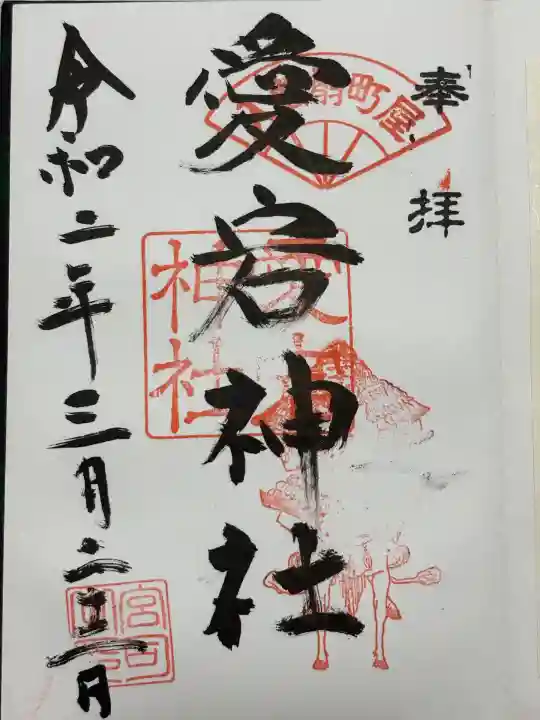 奉拝
扇町屋
愛宕神社
神社
令和二年三月二十二日
宮司